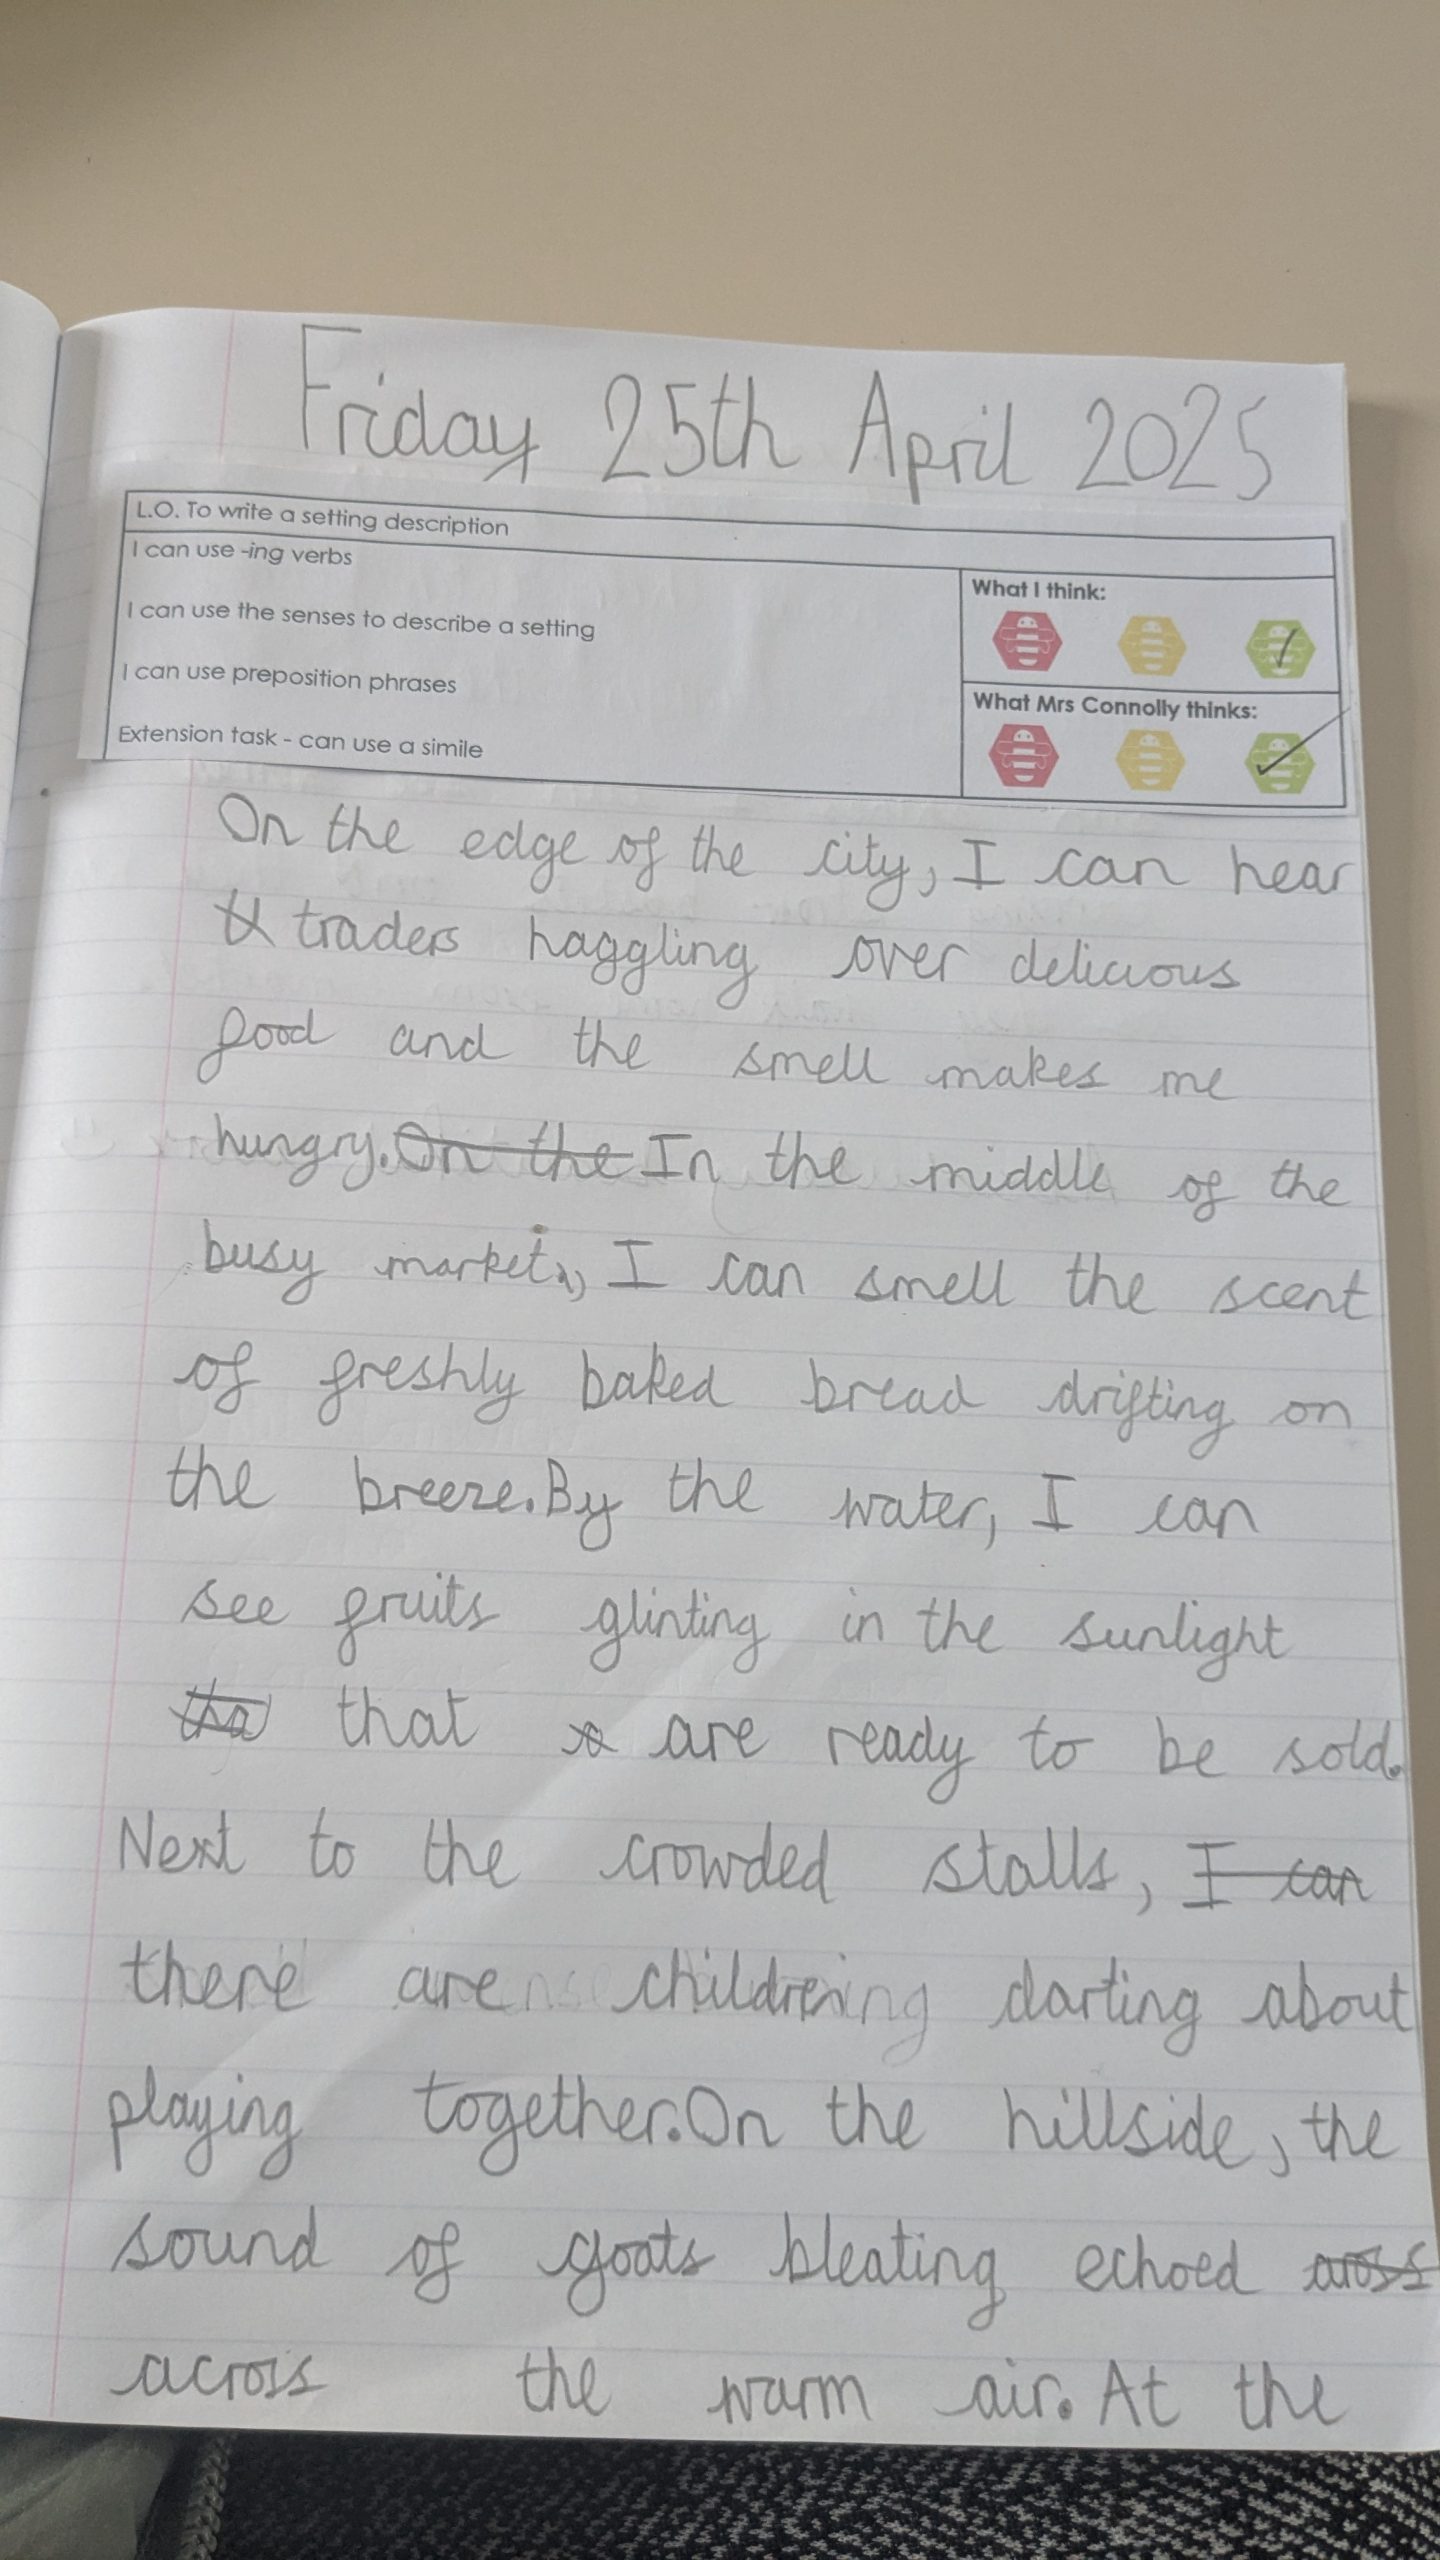 Friday 25th April 2025
L.O. To write a setting description
I can use -ing verbs
I can use the senses to describe a setting
I can use preposition phrases
Extension task - can use a simile
What I think:
What Mrs Connolly thinks:
On the edge of the city, I can hear
traders haggling over delicious
food and the smell makes me
hungry. On the In the middle of the
busy market, I can smell the scent
of freshly baked bread drifting on
the breeze. By the water, I can
see fruits glinting in the sunlight
tha that are ready to be sold.
Next to the crowded stalls, I can
there are children darting about
playing together. On the hillside, the
sound of goats bleating echoed
across the warm air. At the